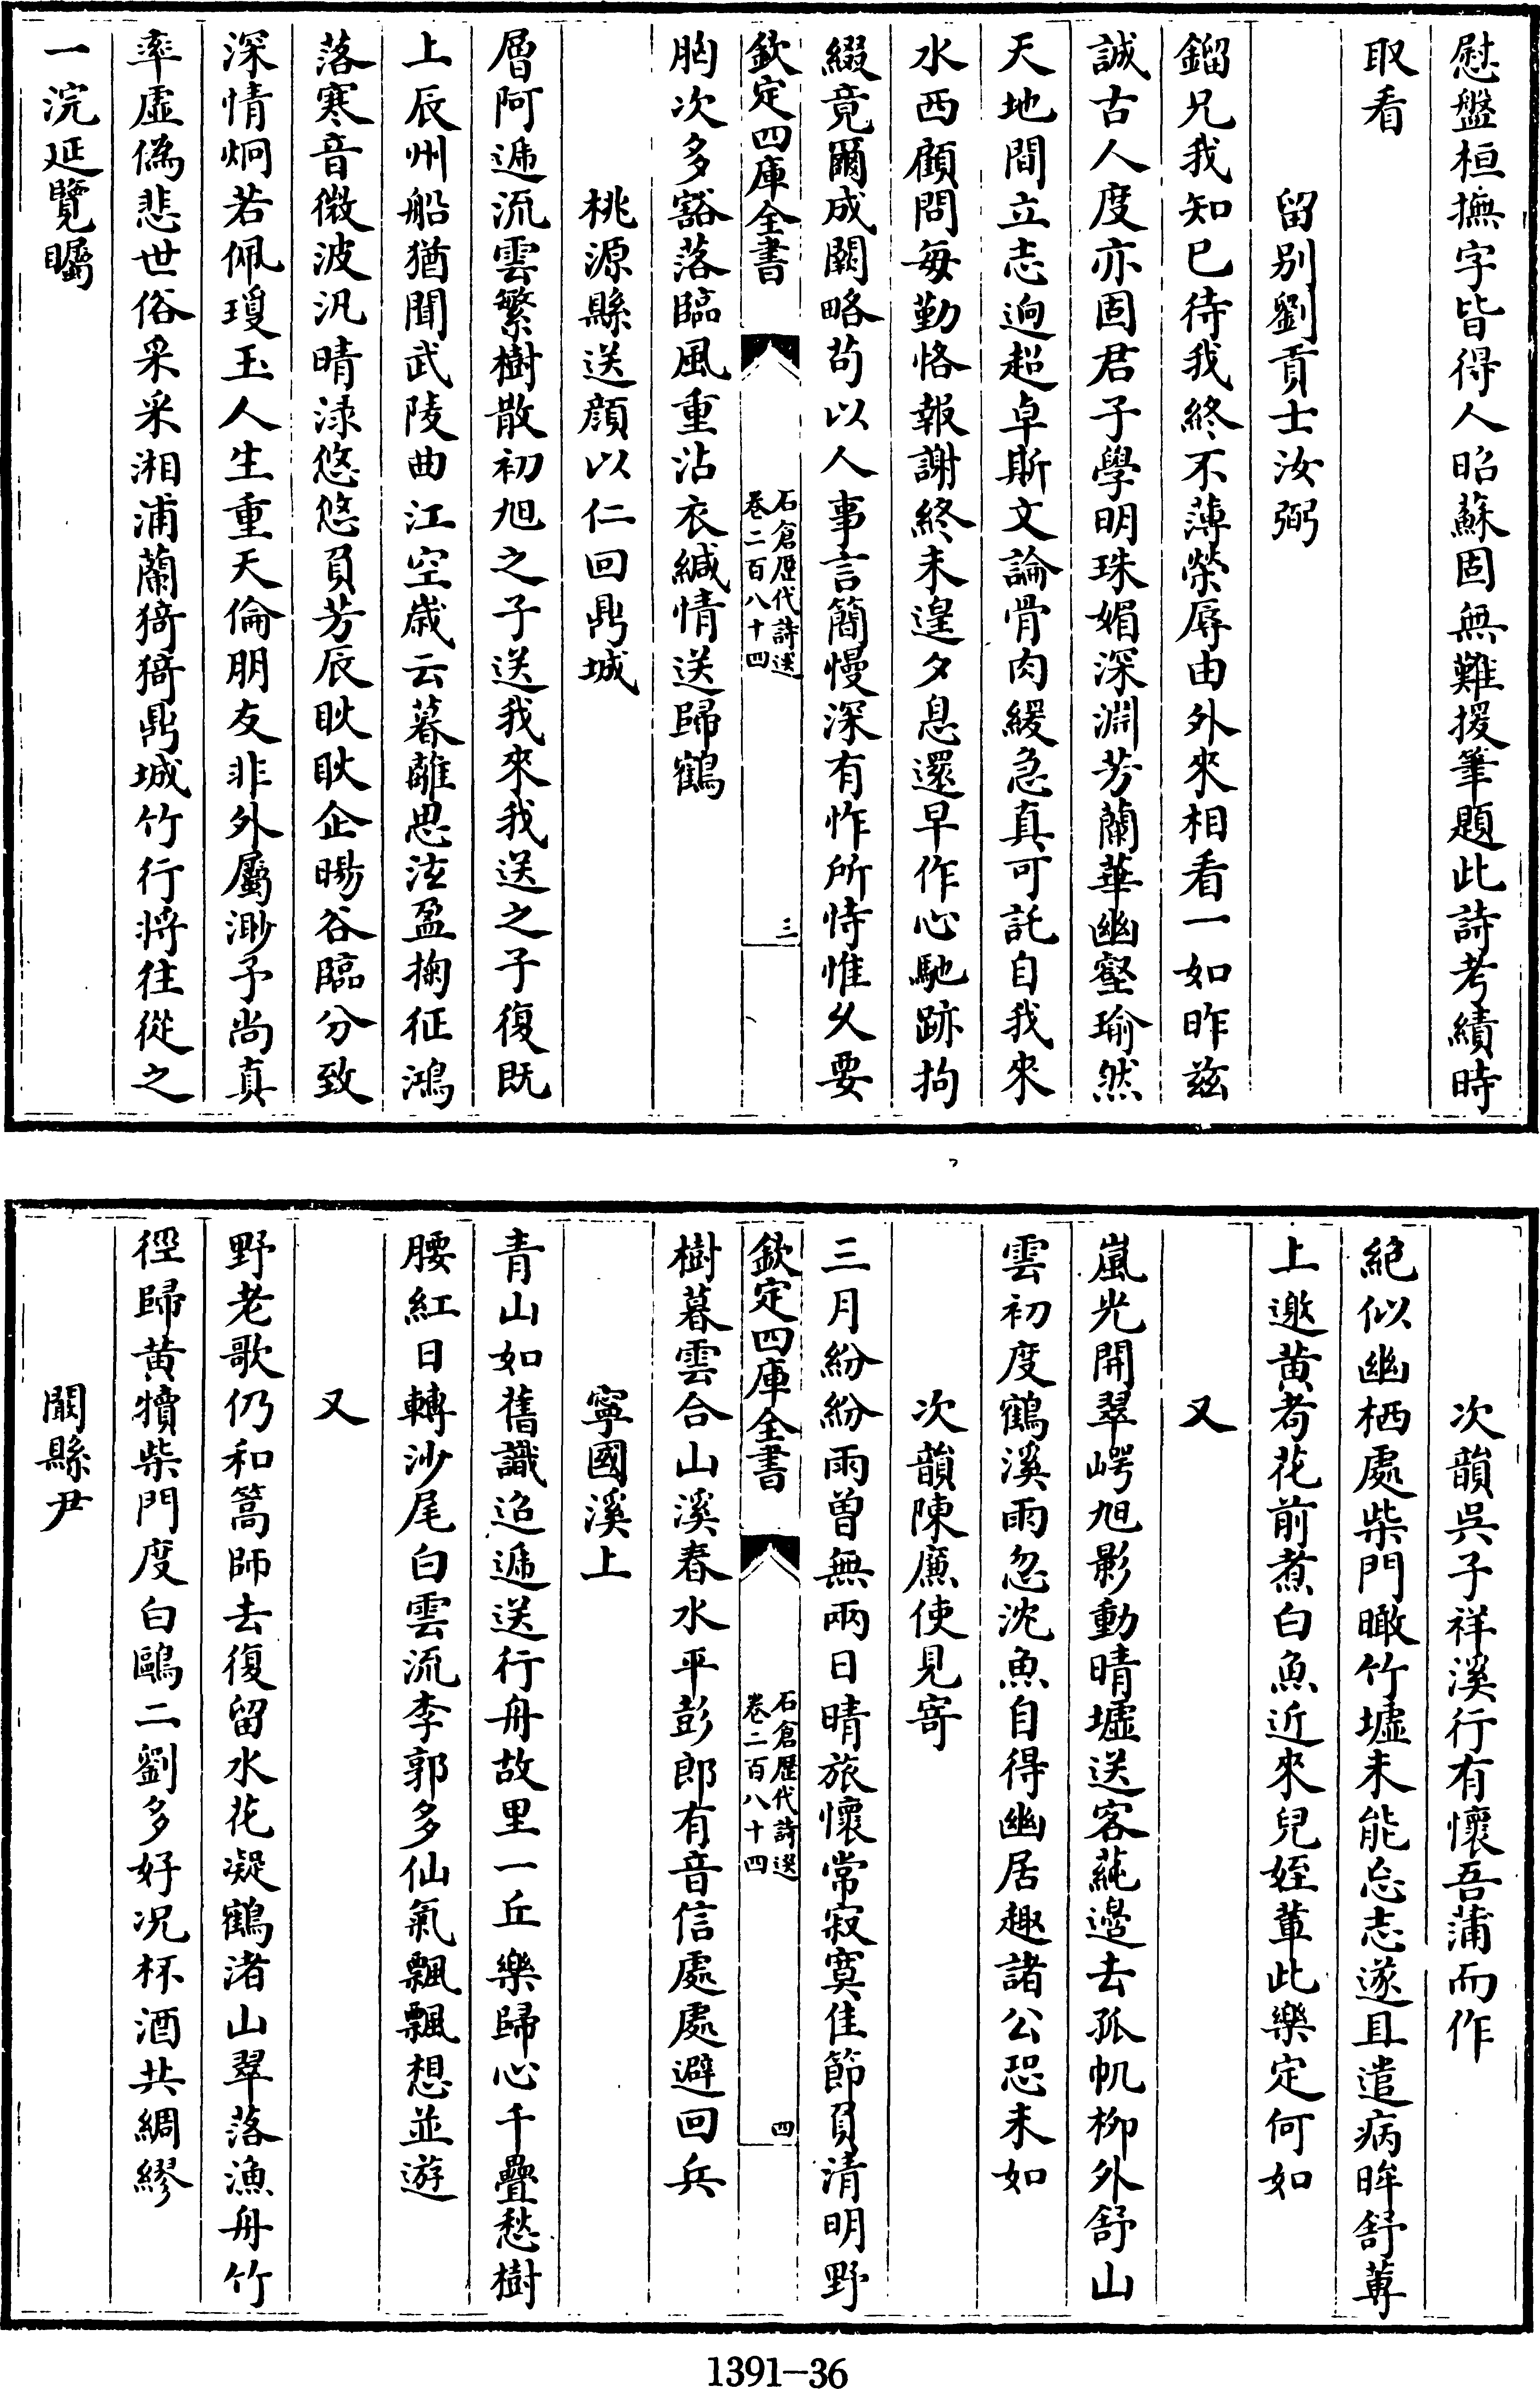 慰盤桓撫字皆得人昭蘇固無難援筆題此詩考績時
取看
留别劉貢士汝弼
鎦兄我知己待我終不薄榮辱由外來相看一如昨兹
誠古人度亦固君子學明珠媚深淵芳蘭華幽壑瑜然
天地間立志逈超卓斯文論骨肉緩急真可託自我來
水西顧問每勤恪報謝終未遑夕息還早作心馳跡拘
綴竟爾成闕略苟以人事言簡慢深有怍所恃惟久要
欽定四庫全書
石倉歷代詩選
卷二百八十四
三
胸次多豁落臨風重沾衣緘情送歸鶴
桃源縣送顔以仁回鼎城
層阿遞流雲繁樹散初旭之子送我來我送之子復既
上辰州船猶聞武陵曲江空歲云暮離思泫盈掬征鴻
落寒音微波汎晴渌悠悠負芳辰耿耿企暘谷臨分致
深情炯若佩瓊玉人生重天倫朋友非外屬渺予尚真
率虛偽悲世俗采采湘浦蘭猗猗鼎城竹行將往從之
一浣延覽矚
次韻呉子祥溪行有懷吾蒲而作
絶似幽栖處柴門瞰竹墟未能忘志遂且遣病眸舒蓴
上邀黄耇花前煮白魚近來兒姪輩此樂定何如
又
嵐光開翠崿旭影動晴墟送客蒓邊去孤帆柳外舒山
雲初度鶴溪雨忽沈魚自得幽居趣諸公恐未如
次韻陳廉使見寄
三月紛紛雨曽無兩日晴旅懷常寂寞佳節負清明野
欽定四庫全書
石倉歷代詩選
卷二百八十四
四
樹暮雲合山溪春水平彭郎有音信處處避回兵
寧國溪上
青山如舊識迢遞送行舟故里一丘樂歸心千疊愁樹
腰紅日轉沙尾白雲流李郭多仙氣飄飄想並遊
又
野老歌仍和篙師去復留水花凝鶴渚山翠落漁舟竹
徑歸黄犢柴門度白鷗二劉多好况杯酒共綢繆
闞縣尹
1391-36